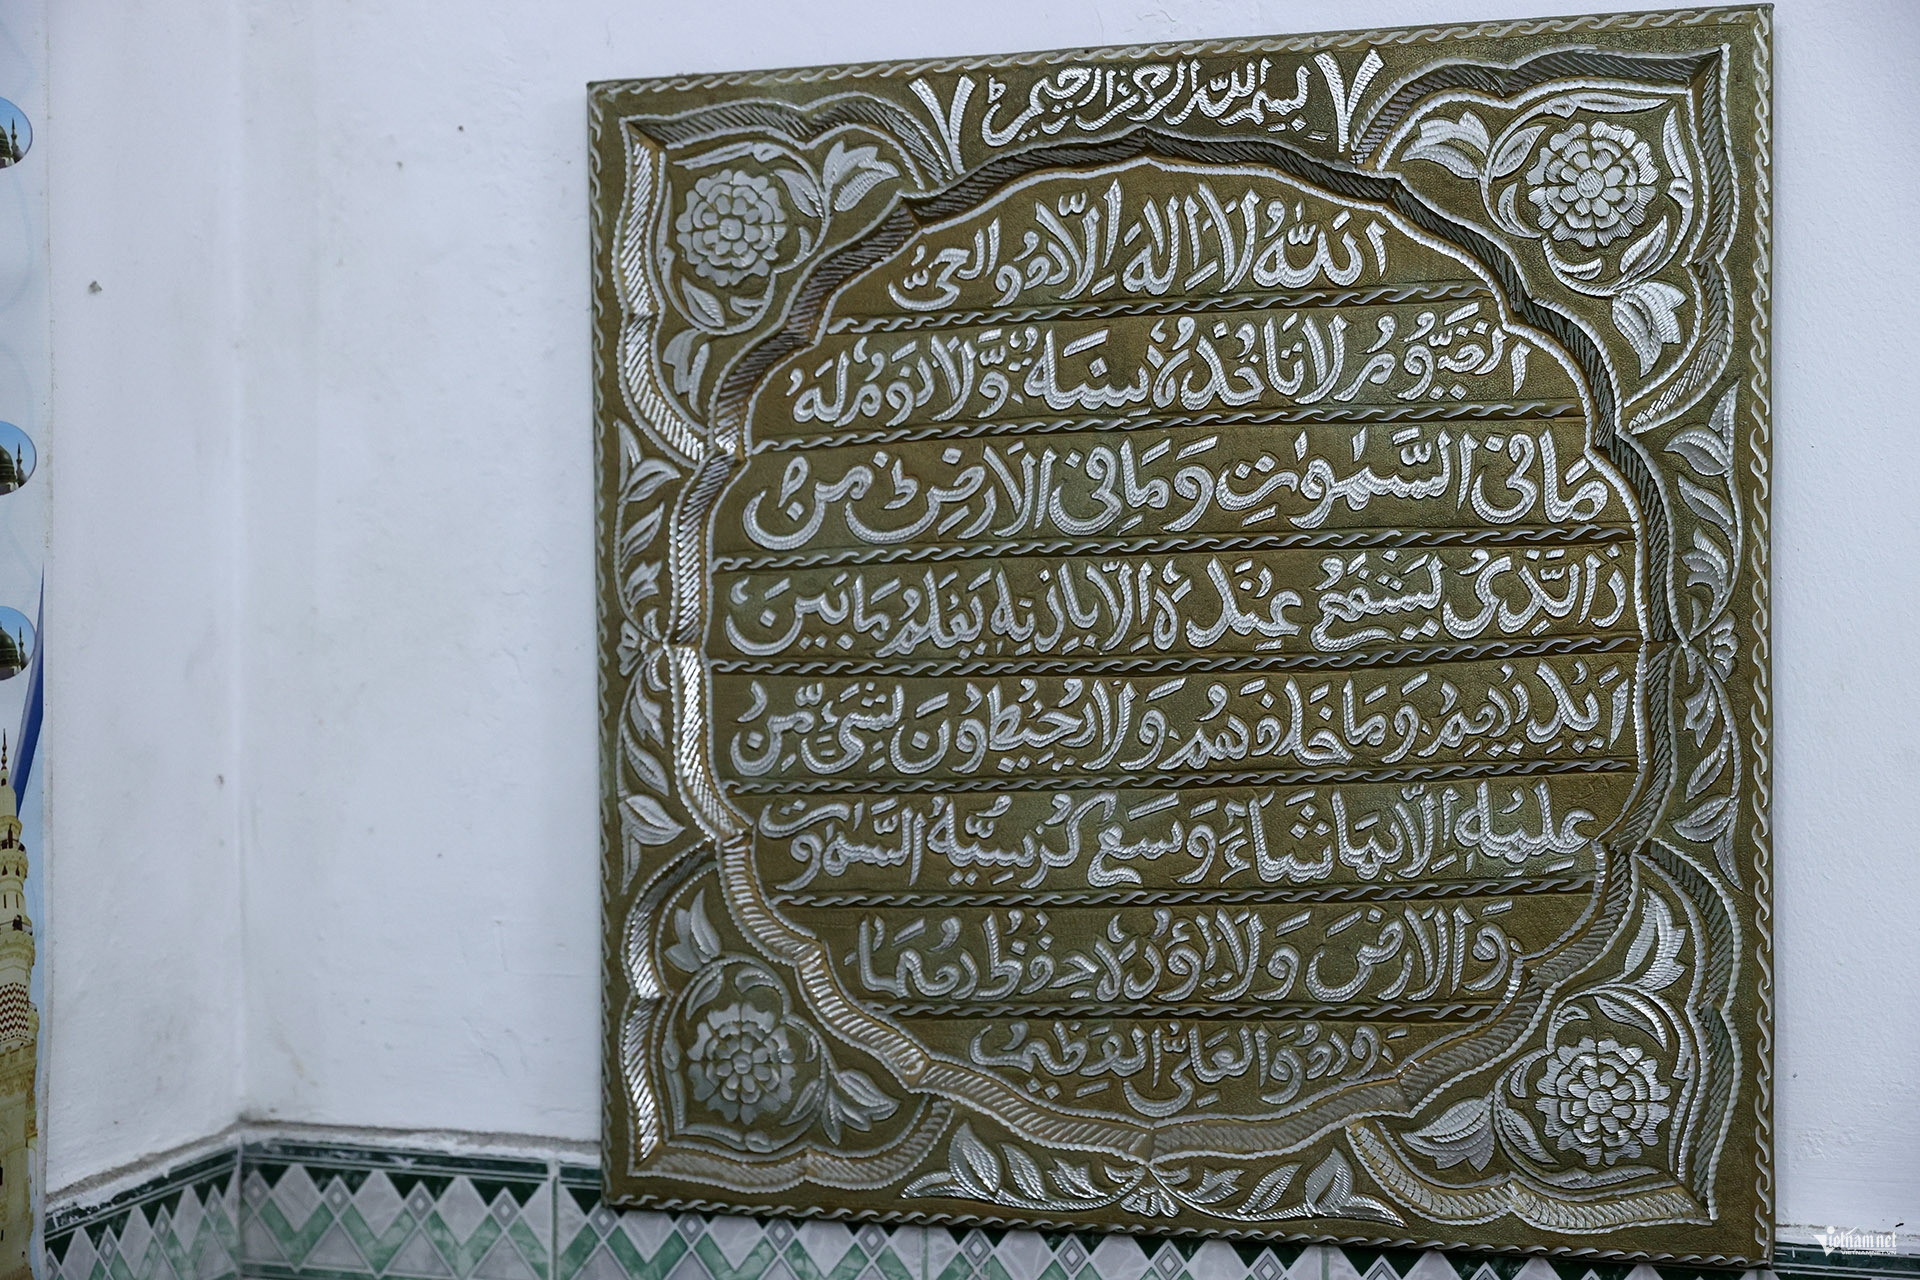 بسم الله الرحمن الرحيم
اَللّٰهُ لَا اِلٰهَ اِلَّا هُوَ الْحَىُّ
الْقَيُّوْمُ لَا تَاْخُذُهٗ سِنَةٌ وَّلَا نَوْمٌ لَهٗ
مَا فِى السَّمٰوٰتِ وَمَا فِى الْاَرْضِ ط مَنْ
ذَا الَّذِىْ يَشْفَعُ عِنْدَهٗ اِلَّا بِاِذْنِهٖ يَعْلَمُ مَا بَيْنَ
اَيْدِيْهِمْ وَمَا خَلْفَهُمْ وَلَا يُحِيْطُوْنَ بِشَىْءٍ مِّنْ
عِلْمِهٖ اِلَّا بِمَا شَآءَ وَسِعَ كُرْسِيُّهُ السَّمٰوٰتِ
وَالْاَرْضَ وَلَا يَؤُدُهٗ حِفْظُهُمَا
وهو العلىُّ العظيم
Vietnamnet
VIETNAMNET.VN